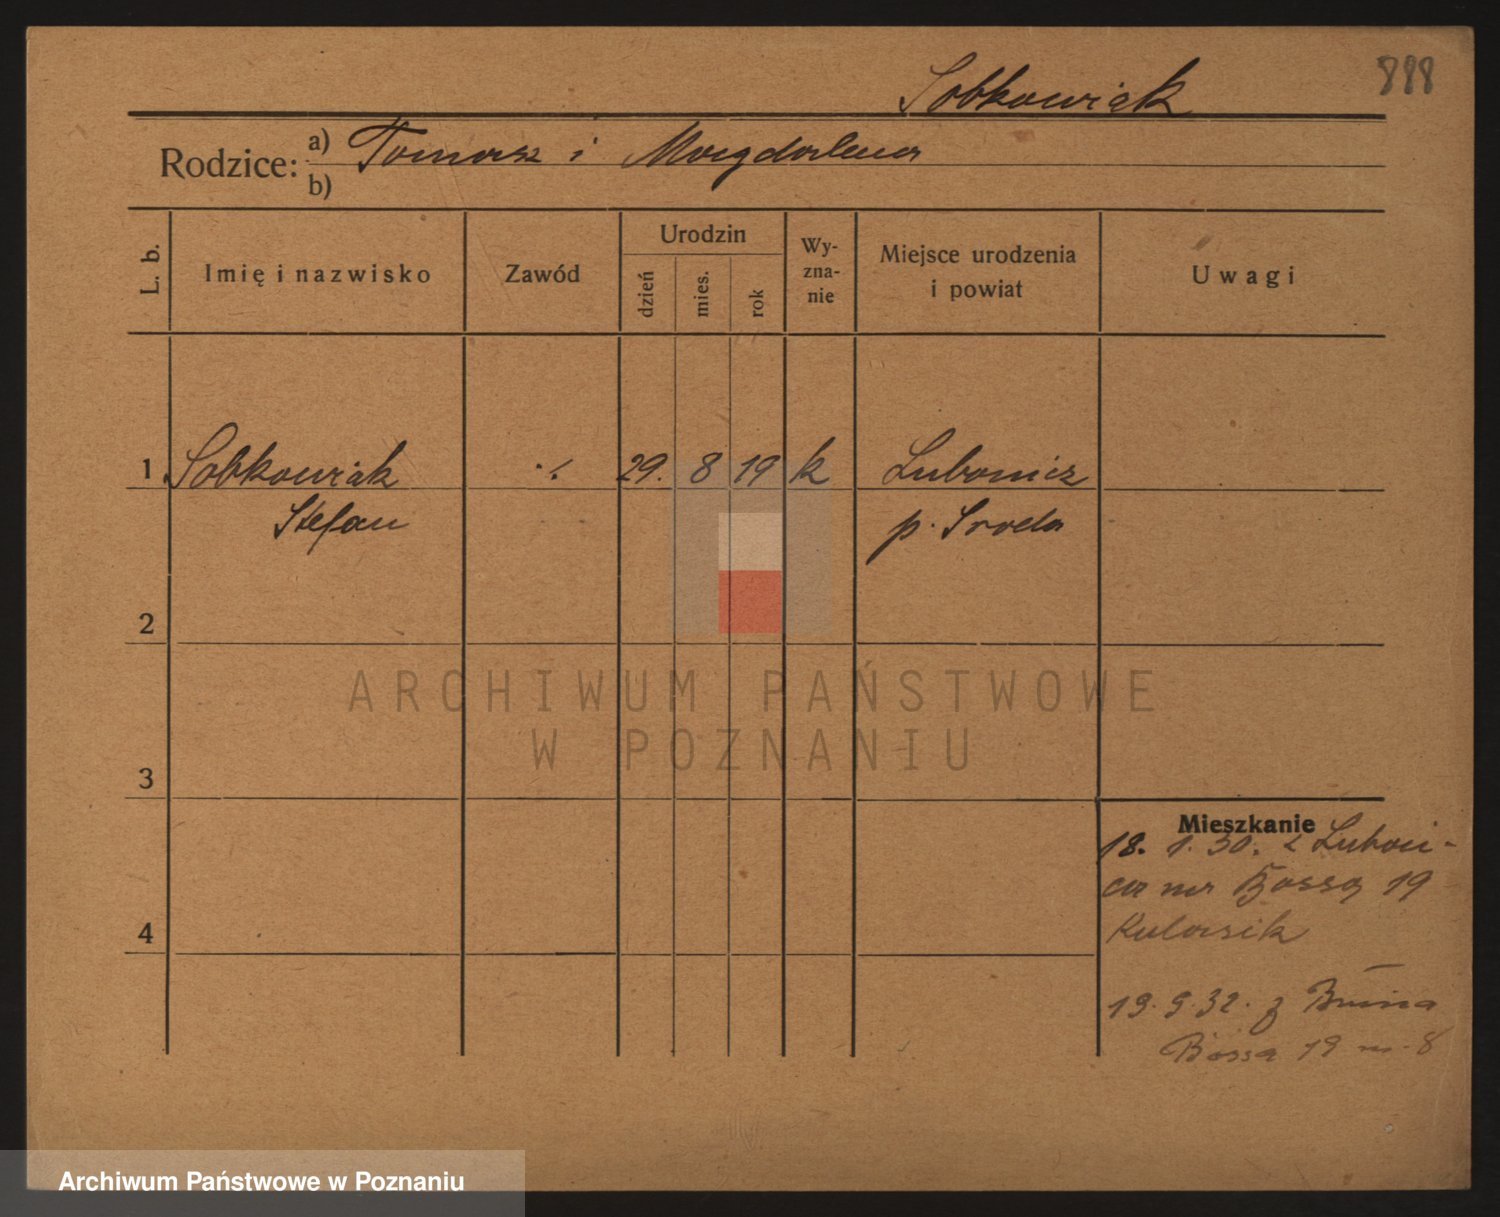 888
Sobkowiak
Rodzice: a) Tomasz i Magdalena
b)
L. b. Imię i nazwisko Zawód Urodzin dzień mies. rok Wy-zna-nie Miejsce urodzenia i powiat Uwagi
1 Sobkowiak ./. 29. 8 19 k
Stefan p. Sroda
2
3
Mieszkanie
18. 1. 30. z
na Bossa 19
4
19. 9. 32. z
Bossa 19 m. 8
ARCHIWUM PAŃSTWOWE
W POZNANIU
Archiwum Państwowe w Poznaniu